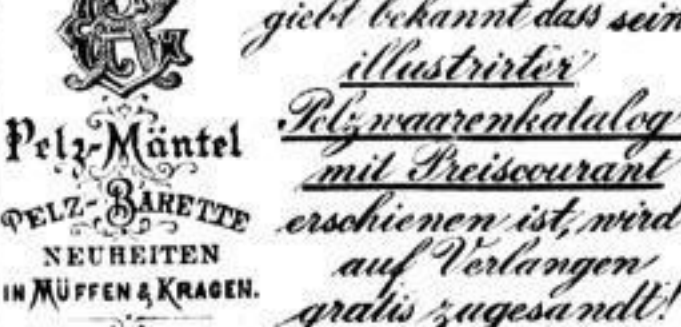 Pelz-Mäntel
PELZ-BARETTE
NEUHEITEN
IN MÜFFEN & KRAGEN.
giebt bekannt dass sein
illustrirter
Pelzwaarenkatalog
mit Preiscourant
erschienen ist, wird
auf Verlangen
gratis zugesandt!